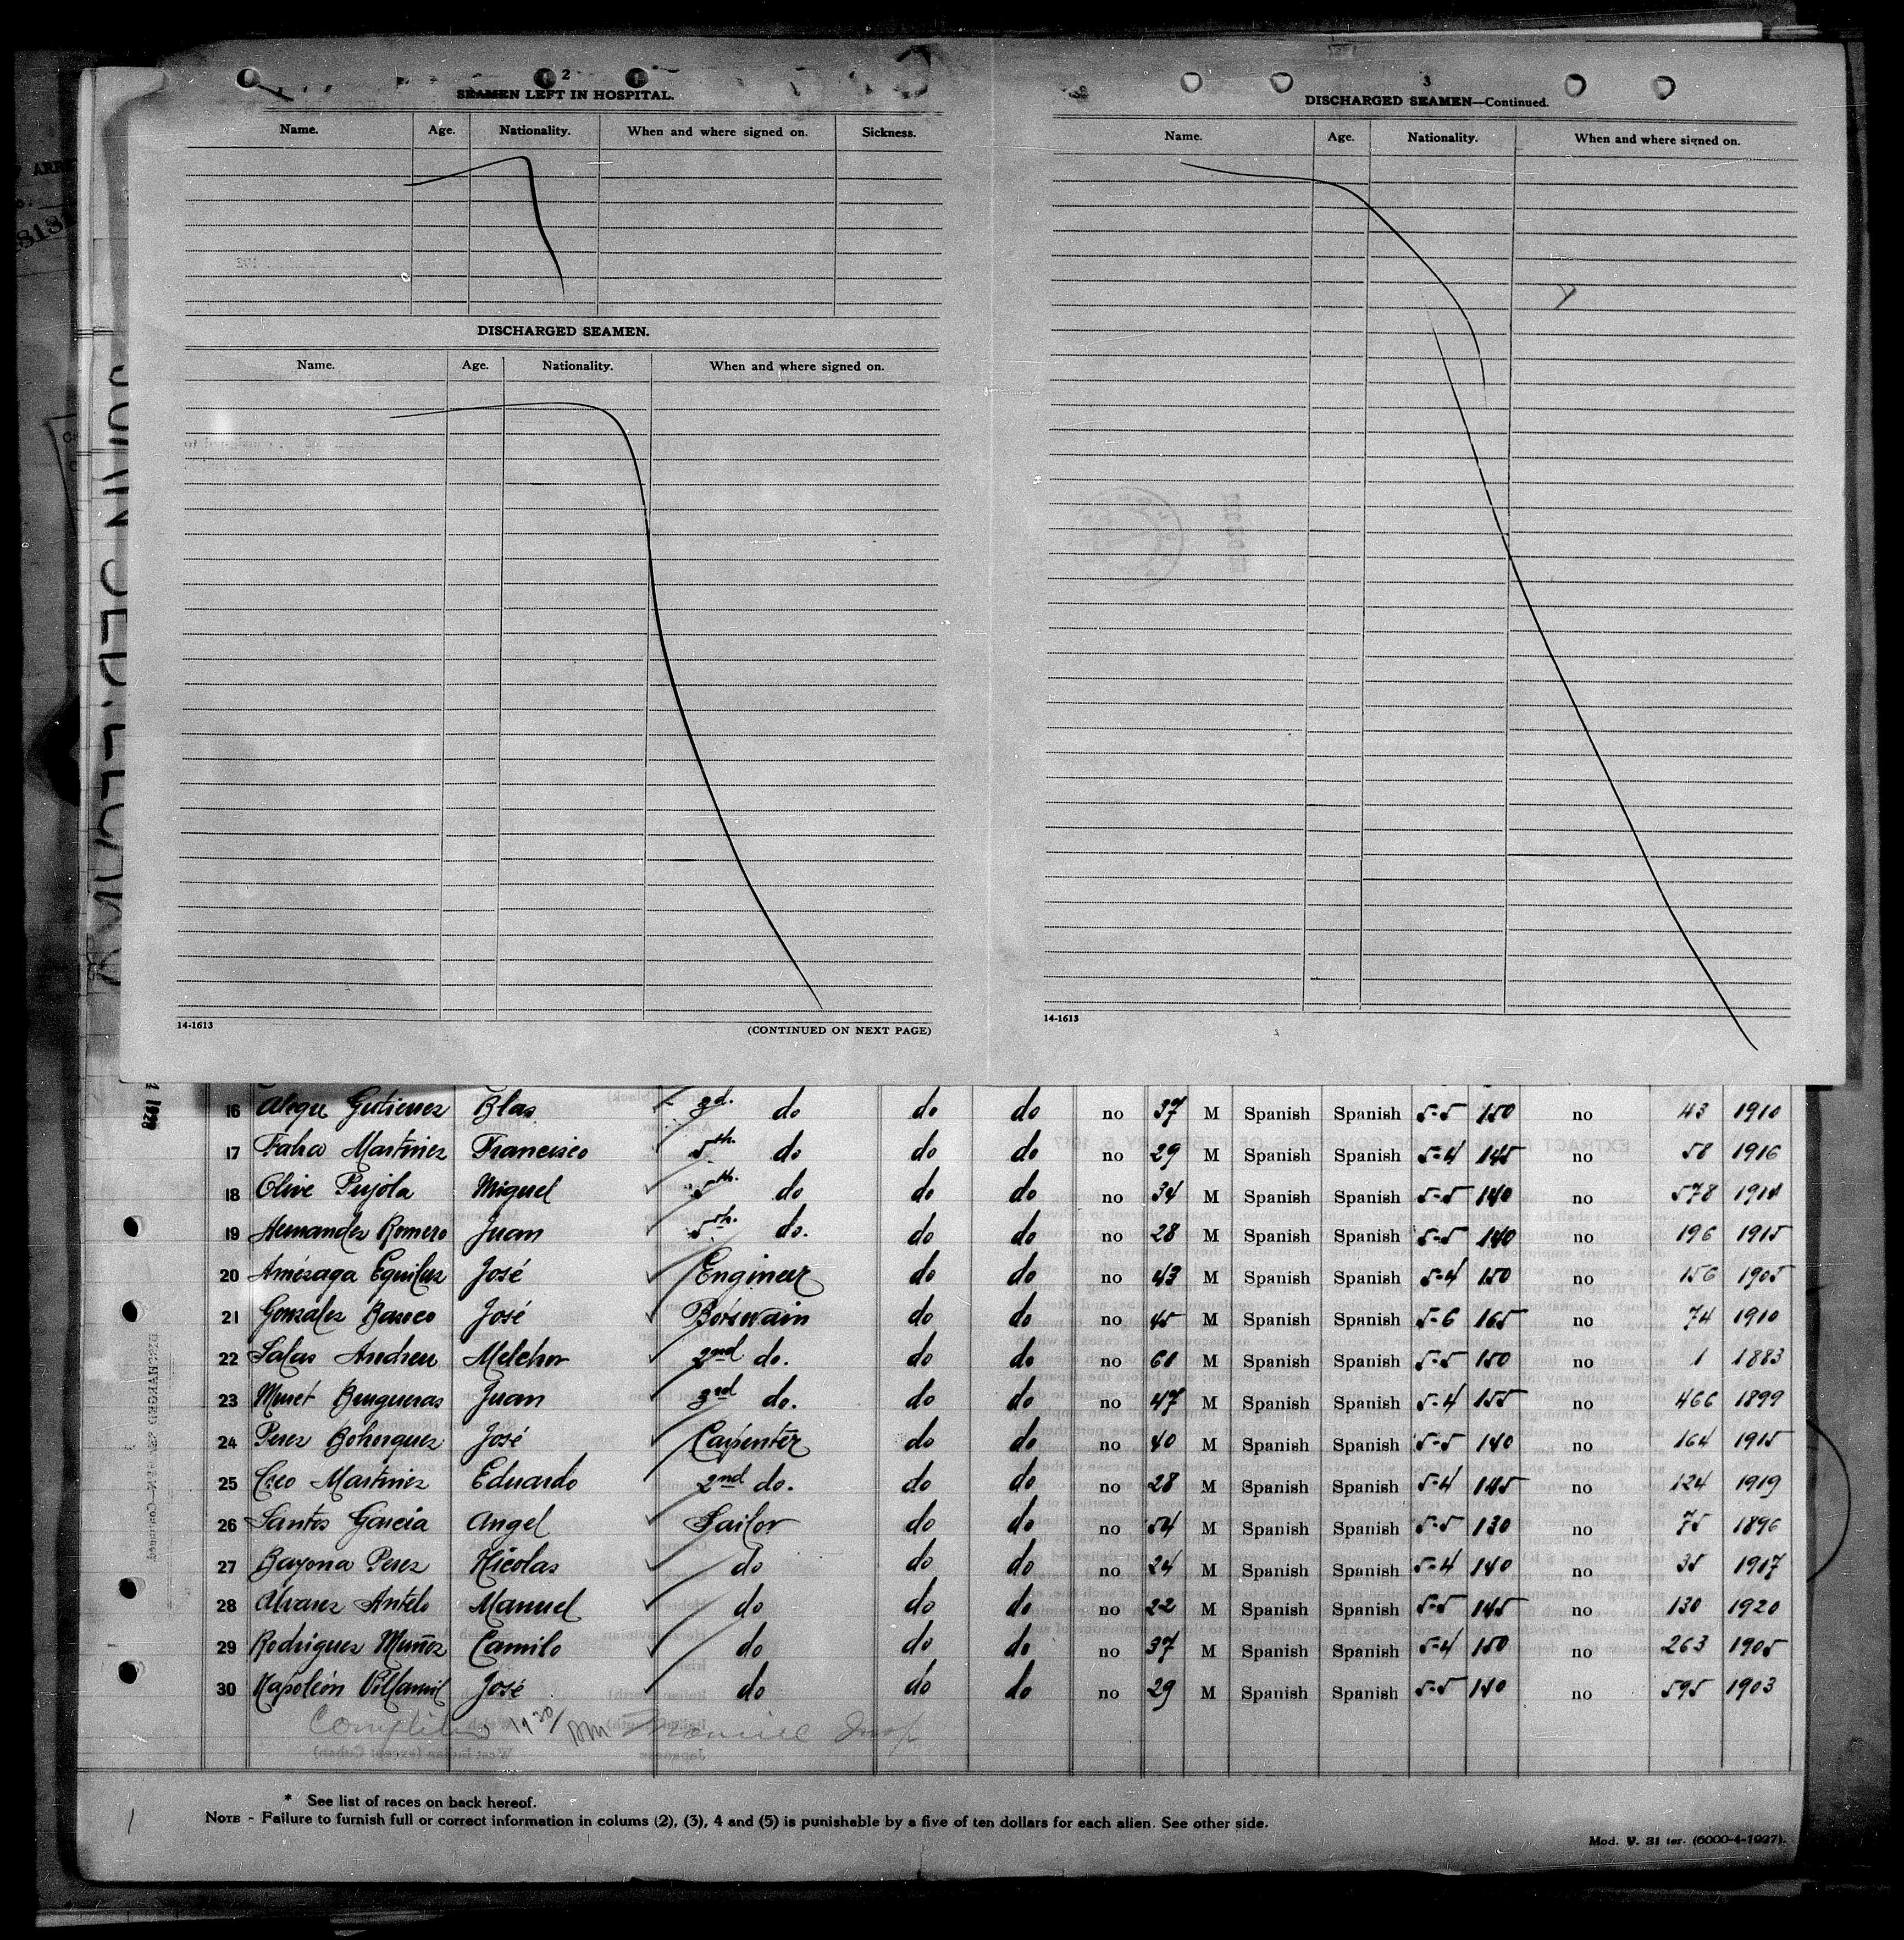 2
SEAMEN LEFT IN HOSPITAL.
Name. Age. Nationality. When and where signed on. Sickness.
DISCHARGED SEAMEN.
Name. Age. Nationality. When and where signed on.
14-1613 (CONTINUED ON NEXT PAGE)
3
DISCHARGED SEAMEN—Continued.
Name. Age. Nationality. When and where signed on.
14-1613
16 Gutierrez Blas 3d. do do do no 37 M Spanish Spanish 5-5 150 no 43 1910
17 Martinez Francisco 5th. do do do no 29 M Spanish Spanish 5-4 145 no 58 1916
18 Olive Pujola Miguel 5th. do do do no 34 M Spanish Spanish 5-5 140 no 578 1914
19 Hernandez Romero Juan 5th. do. do do no 28 M Spanish Spanish 5-5 140 no 196 1915
20 Amézaga Eguiluz José Engineer do do no 43 M Spanish Spanish 5-4 150 no 156 1905
21 Gonzalez José Botswain do do no 45 M Spanish Spanish 5-6 165 no 74 1910
22 Salas Andreu Melchor 2nd do. do do no 60 M Spanish Spanish 5-5 150 no 1 1883
23 Brugueras Juan 3rd do. do do no 47 M Spanish Spanish 5-4 155 no 466 1899
24 Perez Bohorquez José Carpenter do do no 40 M Spanish Spanish 5-5 140 no 164 1915
25 Martinez Eduardo 2nd do. do do no 28 M Spanish Spanish 5-4 145 no 124 1919
26 Santos Garcia Angel Sailor do do no 54 M Spanish Spanish 5-5 130 no 75 1896
27 Bayona Perez Nicolas do do do no 24 M Spanish Spanish 5-4 140 no 35 1917
28 Alvarez Antelo Manuel do do do no 22 M Spanish Spanish 5-5 145 no 130 1920
29 Rodriguez Muñoz Camilo do do do no 37 M Spanish Spanish 5-4 150 no 263 1905
30 Napoleón Villamil José do do do no 29 M Spanish Spanish 5-5 140 no 595 1903
* See list of races on back hereof.
NOTE - Failure to furnish full or correct information in colums (2), (3), 4 and (5) is punishable by a five of ten dollars for each alien. See other side.
Mod. V. 31 ter. (6000-4-1927).